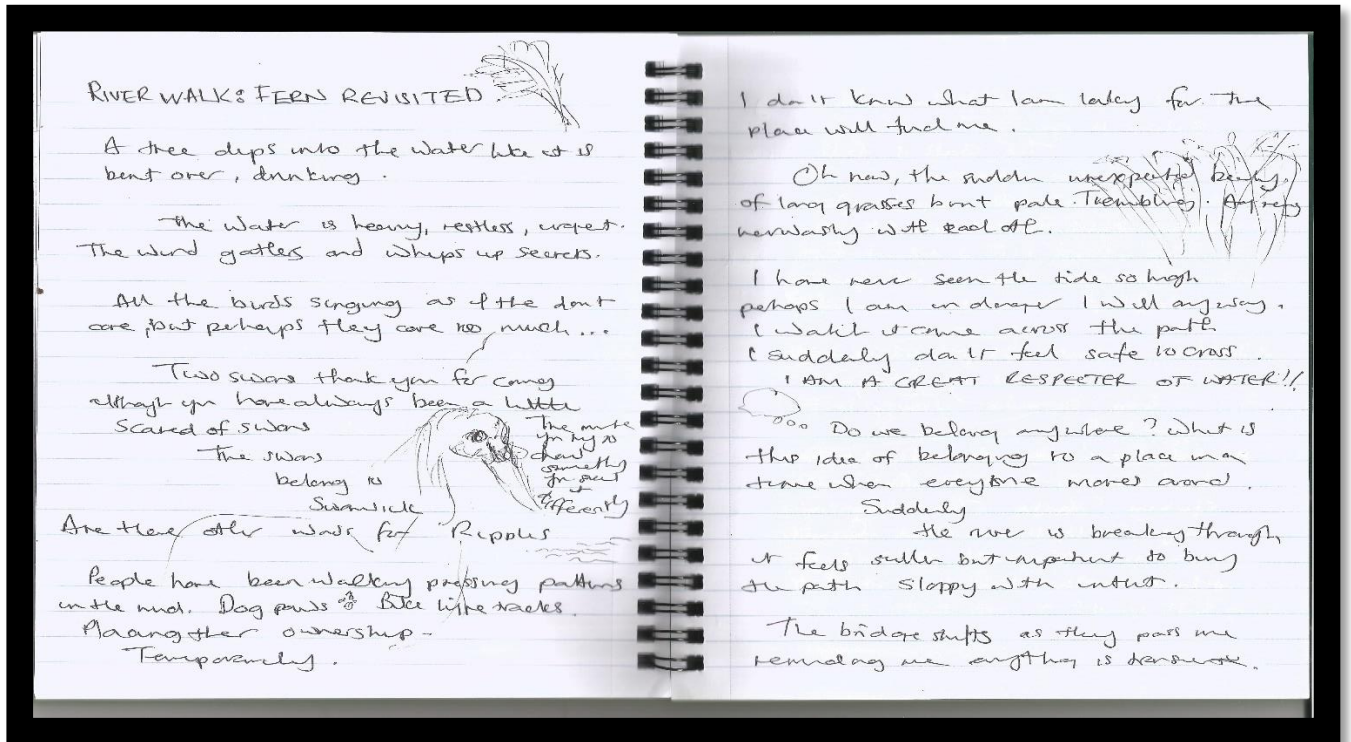 RIVER WALK: FERN REVISITED.
A tree dips into the water like it is
bent over, drinking.
The water is heavy, restless, urgent.
The wind gathers and whips up secrets.
All the birds singing as if the dont
care, but perhaps they care too much...
Two swans thank you for coming
although you have always been a little
scared of swans
The swans
belong to
Swanwick
The more
you try to
draw
something
you
it
differently
Are there other words for Ripples
People have been walking pressing patterns
in the mud. Dog paws Bike tracks.
Placing their ownership -
Temporarily.
I don't know what I am looking for. The
place will find me.
Oh now, the sudden unexpected beauty
of long grasses burnt pale. Trembling.
with each oth.
I have never seen the tide so high
perhaps I am in danger I will anyway.
I it come across the path
I suddenly don't feel safe to cross.
I AM A GREAT RESPECTER OF WATER!!
Do we belong anywhere? What is
this idea of belonging to a place in a
time when everyone moves around.
Suddenly
the river is breaking through
it feels sullen but impatient to bury
the path sloppy with intent.
The bridge shifts as they pass me
reminding me is